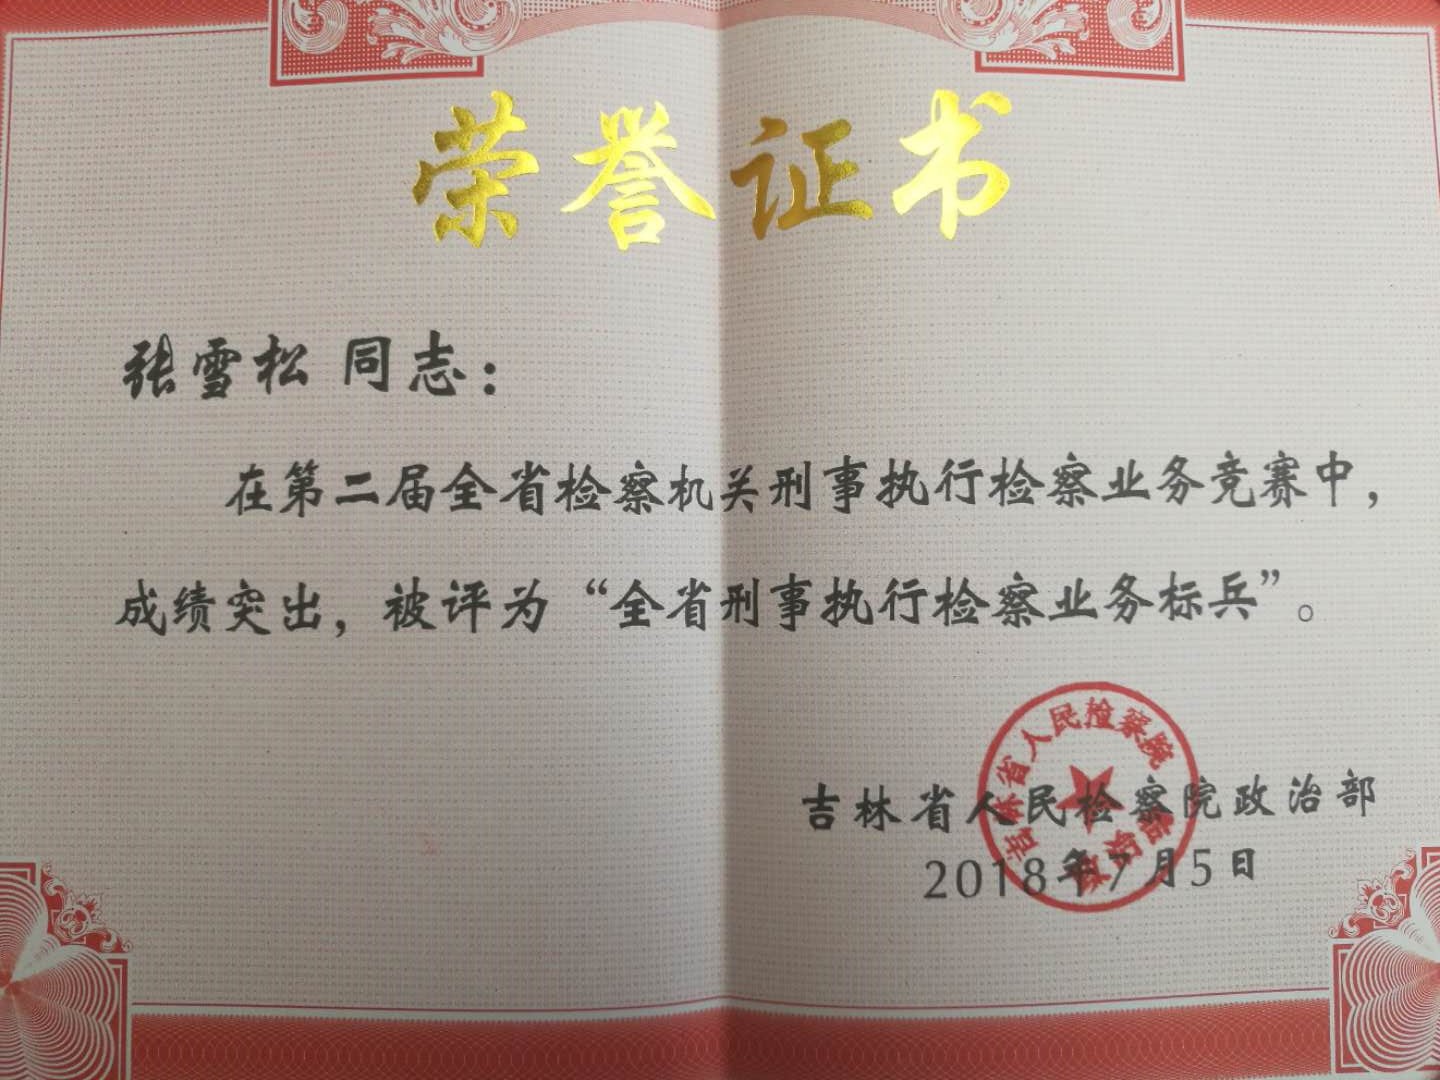 荣誉证书
张雪松 同志：
在第二届全省检察机关刑事执行检察业务竞赛中，
成绩突出，被评为“全省刑事执行检察业务标兵”。
吉林省人民检察院
吉林省人民检察院政治部
2018年7月5日